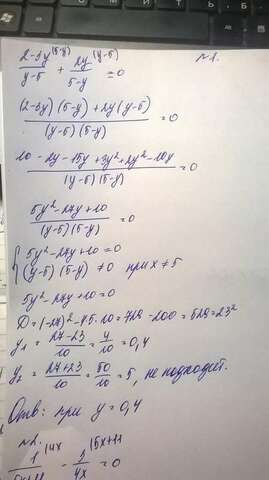 №1.
(2-3y)/(y-5) (5-y) + 2y/(5-y) (y-5) = 0
((2-3y)(5-y)+2y(y-5))/((y-5)(5-y)) = 0
(10-2y-15y+3y²+2y²-10y)/((y-5)(5-y)) = 0
(5y²-27y+10)/((y-5)(5-y)) = 0
{ 5y²-27y+10=0
(y-5)(5-y)≠0 при x≠5
5y²-27y+10=0
D=(-27)²-4·5·10=729-200=529=23²
y₁ = (27-23)/10 = 4/10 = 0,4
y₂ = (27+23)/10 = 50/10 = 5, не подходит.
Отв: при y=0,4
№2.